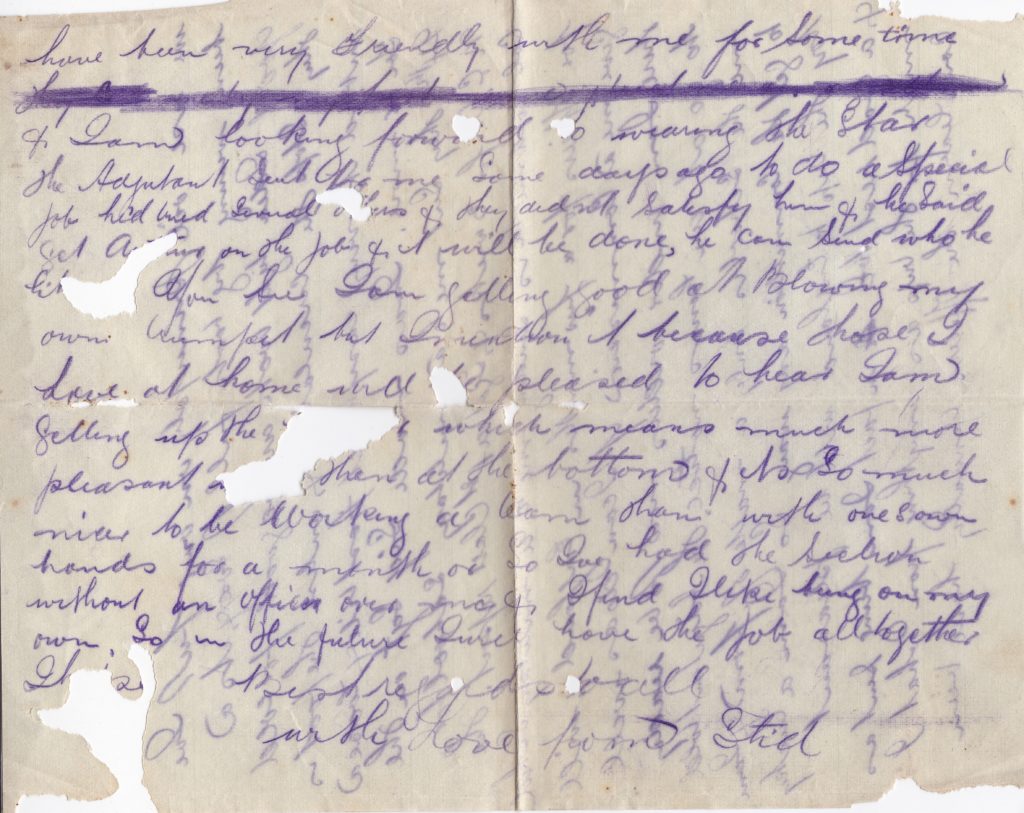 have been very Friendly with me for Some time
& I am looking forward to wearing the Star
the Adjutant Sent for me Some days ago to do a Special
job he'd tried Several others & they didn't Satisfy him & he Said
get on the job & it will be done, he can Send who he
You See I am getting good at Blowing my
own trumpet but I mention it because those I
love at home will be pleased to hear I am
getting up the which means much more
pleasant than at the bottom & its So much
nicer to be Working a team than with ones own
hands for a month or So I've had the Section
without an officer over me & I find I like being on my
own, So in the future I will have the job alltogether
Best regards to all
with Love from Stid